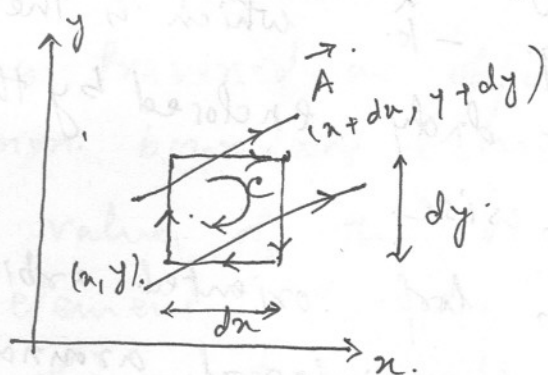 y
A
(x+dx, y+dy)
C
dy.
(x, y).
dx
x.